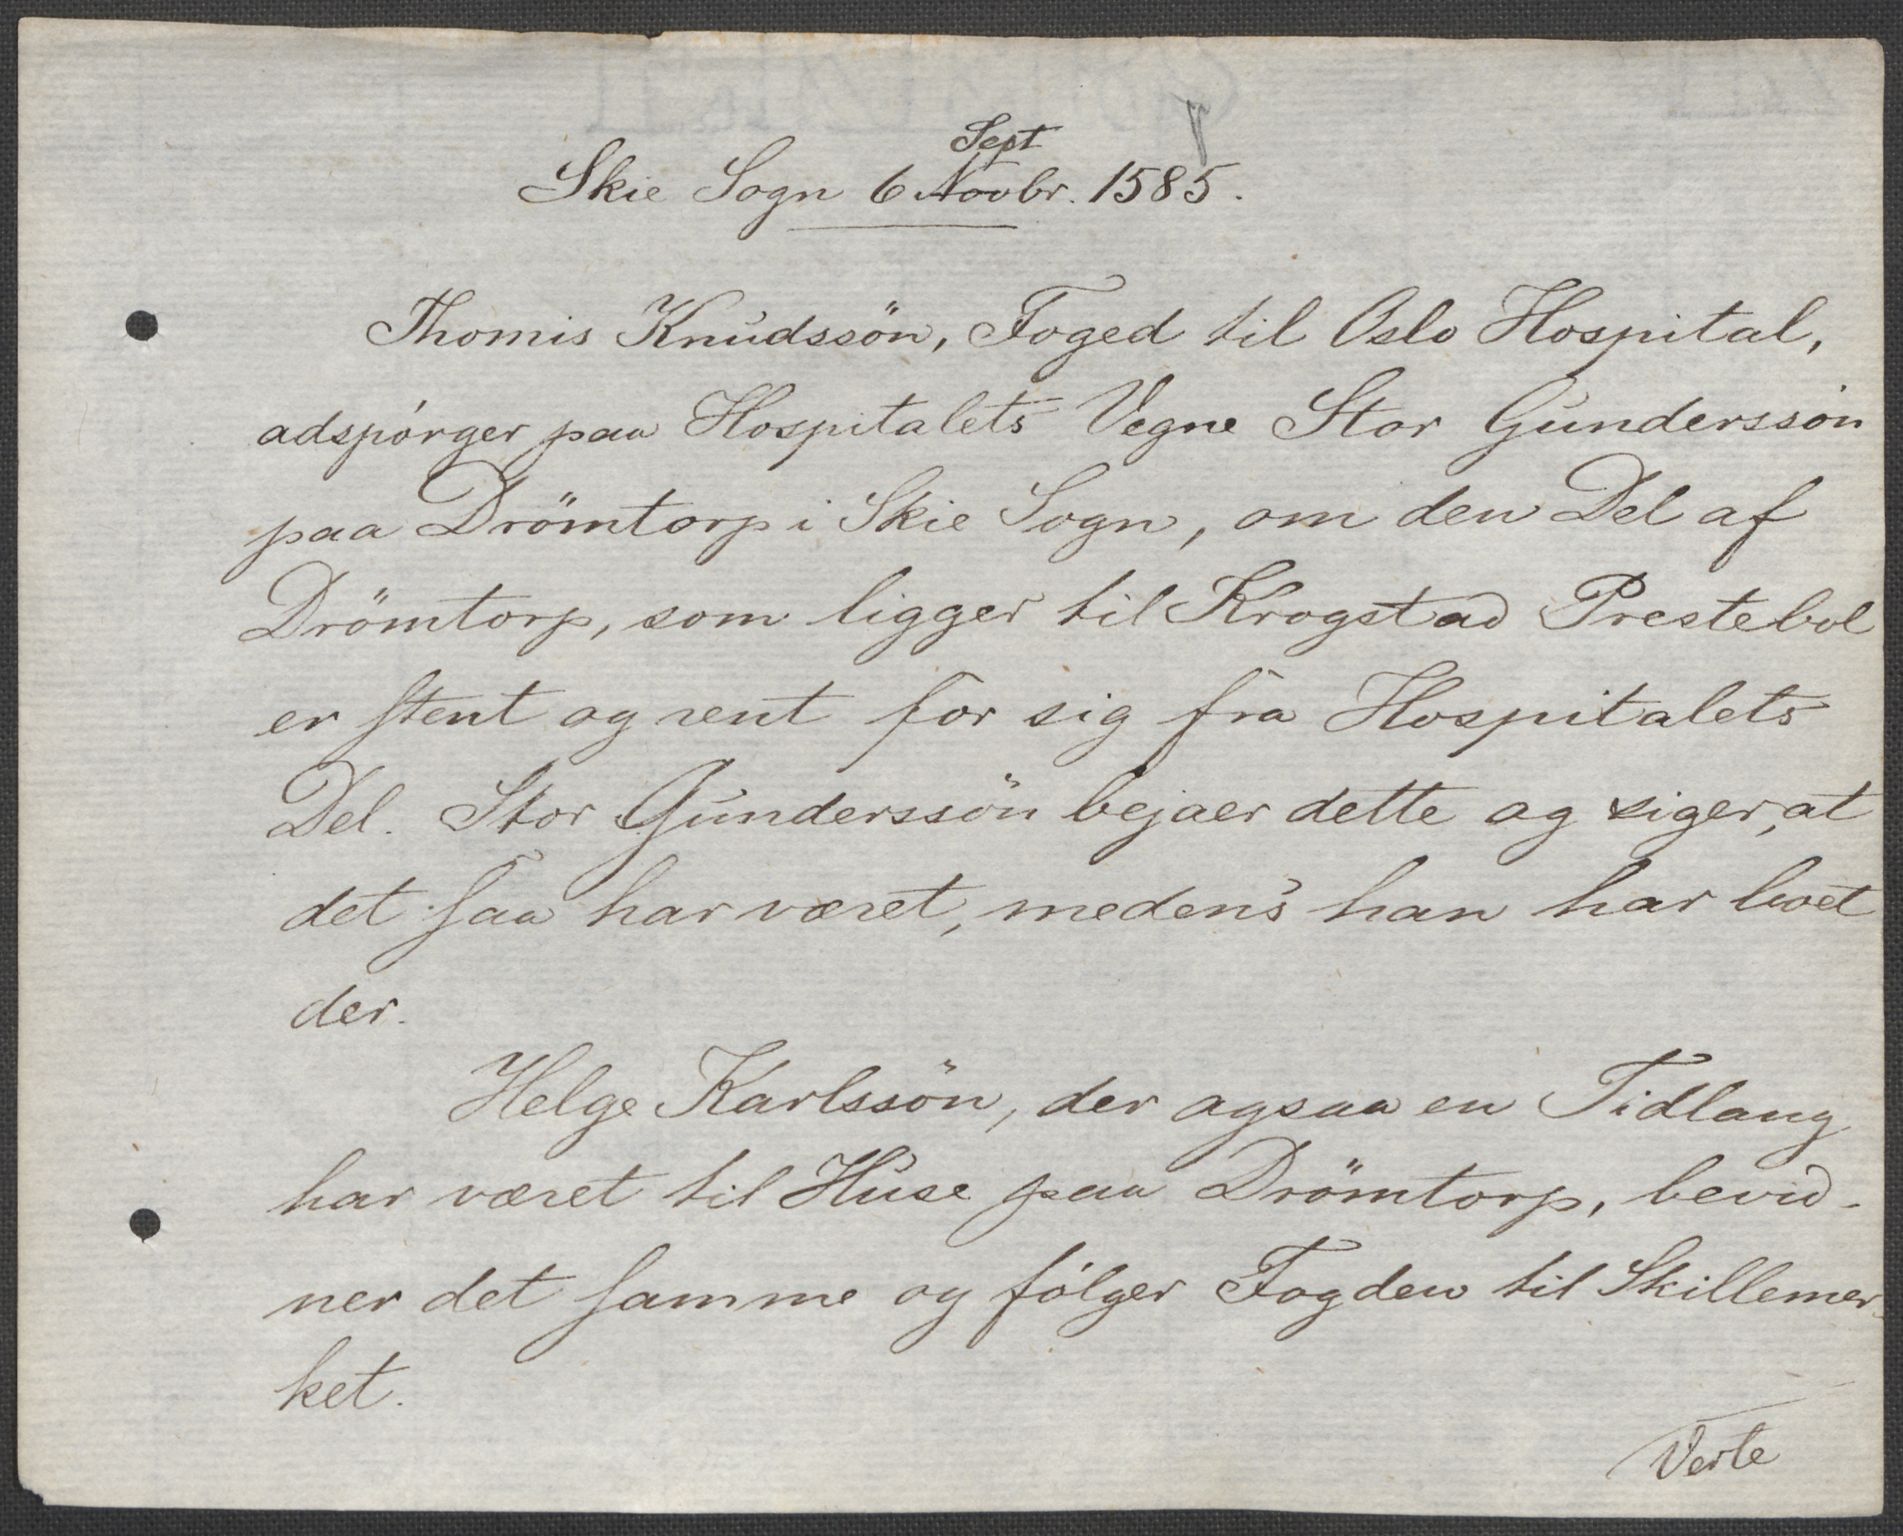 Sept
Skie Sogn 6 Novbr. 1585.
Thomis Knudssön, Foged til Oslo Hospital,
adspörger paa Hospitalets Vegne Stor Gunderssön
paa Drömtorp i Skie Sogn, om den Del af
Drömtorp, som ligger til Krogstad Prestebol
er stent og rent for sig fra Hospitalets
Del. Stor Gunderssön bejaer dette og siger, at
det saa har været, medens han har boet
der.
Helge Karlssön, der ogsaa en Tidlang
har været til Huse paa Drömtorp, bevid-
ner det samme og fölger Fogden til Skillemer-
ket.
Verte